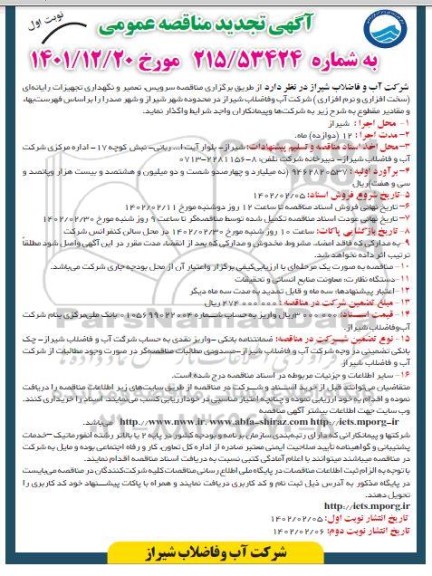 نوبت اول
آگهی تجدید مناقصه عمومی
به شماره ۲۱۵/۵۳۴۲۴ مورخ ۱۴۰۱/۱۲/۲۰
شرکت آب و فاضلاب شیراز در نظر دارد از طریق برگزاری مناقصه سرویس، تعمیر و نگهداری تجهیزات رایانه‌ای
(سخت افزاری و نرم افزاری) شرکت آب وفاضلاب شیراز در محدوده شهر شیراز و شهر صدرا را بر اساس فهرست‌بها،
و مقادیر مقطوع به شرح زیر به شرکت‌ها وپیمانکاران واجد شرایط واگذار نماید.
۱- محل اجرا: شیراز
۲- مدت اجرا: ۱۲ (دوازده) ماه.
۳- محل اخذ اسناد مناقصه و تسلیم پیشنهادات: شیراز- بلوار آیت ا... ربانی- نبش کوچه ۱۷- اداره مرکزی شرکت
آب و فاضلاب شیراز- دبیرخانه شرکت تلفن: ۸-۳۲۲۸۱۱۵۶-۰۷۱
۴- برآورد اولیه: ۹۴۶۲۸۲۰۵۳۷ (نه میلیارد و چهارصدو شصت و دو میلیون و هشتصد و بیست هزار وپانصد و
سی و هفت) ریال
۵- تاریخ شروع فروش اسناد: ۱۴۰۲/۰۲/۰۵
۶- تاریخ نهائی فروش اسناد مناقصه تا ساعت ۱۲ روز دوشنبه مورخ ۱۴۰۲/۰۲/۱۱
۷- تاریخ نهائی عودت اسناد مناقصه تکمیل شده توسط مناقصه‌گر تا ساعت ۹ روز شنبه مورخ ۱۴۰۲/۰۲/۳۰
۸- تاریخ بازگشایی پاکات: ساعت ۱۰ روز شنبه مورخ ۱۴۰۲/۰۲/۳۰ در محل سالن کنفرانس شرکت
۹- به مدارکی که فاقد امضاء، مشروط مخدوش و مدارکی که بعد از انقضاء مدت مقرر در این آگهی واصل شود مطلقاً
ترتیب اثر داده نخواهد شد.
۱۰- مناقصه به صورت یک مرحله‌ای با ارزیابی کیفی برگزار واعتبار آن از محل بودجه جاری شرکت می‌باشد.
۱۱- دستگاه نظارت: معاونت منابع انسانی و تحقیقات
۱۲- اعتبار پیشنهادها: سه ماه و قابل تمدید به مدت سه ماه دیگر
۱۳- مبلغ تضمین شرکت در مناقصه: ۴۷۴,۰۰۰,۰۰۰ ریال
۱۴- قیمت اسناد: ۳,۰۰۰,۰۰۰ ریال واریز به حساب شماره ۰۱۰۵۶۹۹۰۲۲۰۰۴ بانک ملی مرکزی بنام شرکت
آب وفاضلاب شیراز.
۱۵- نوع تضمین شرکت در مناقصه: ضمانتنامه بانکی - واریز نقدی به حساب شرکت آب و فاضلاب شیراز- چک
بانکی تضمینی در وجه شرکت آب و فاضلاب شیراز- مسدودی مطالبات مناقصه‌گر در صورت وجود مطالبات از شرکت
آب و فاضلاب شیراز
۱۶- سایر اطلاعات و جزئیات مربوطه در اسناد مناقصه درج شده است.
متقاضیان می‌توانند قبل از خرید اسناد و شرکت در مناقصه از طریق سایت‌های زیر اطلاعات مناقصه را دریافت
نموده و اقدام به خود ارزیابی نموده و چنانچه امتیاز مناسبی در خودارزیابی کسب می‌نمایند، اسناد را خریداری کنند.
وب سایت جهت اطلاعات بیشتر آگهی مناقصه
http://www.nww.ir, www.abfa-shiraz.com http://iets.mporg-ir می‌باشد.
شرکتها و پیمانکارانی که دارای رتبه‌بندی سازمان برنامه و بودجه کشور در پایه ۲ یا بالاتر رشته انفورماتیک –خدمات
پشتیبانی و گواهینامه تأیید صلاحیت ایمنی معتبر صادره از اداره کل تعاون، کار و رفاه اجتماعی بوده و مایل به شرکت
در مناقصه می‌باشند میتوانند با اعلام آمادگی کتبی نسبت به دریافت اسناد مناقصه اقدام نمایند.
با توجه به الزام ثبت اطلاعات مناقصات در پایگاه ملی اطلاع رسانی مناقصات کلیه شرکت‌کنندگان در مناقصه می‌بایست
در پایگاه مذکور به آدرس ذیل ثبت نام و کد کاربری دریافت نمایند و همراه با پاکات پیشنهاد خود کد کاربری را
تحویل دهند.
http://iets.mporg.ir
تاریخ انتشار نوبت اول: ۱۴۰۲/۰۲/۰۵
تاریخ انتشار نوبت دوم: ۱۴۰۲/۰۲/۰۶
شرکت آب وفاضلاب شیراز